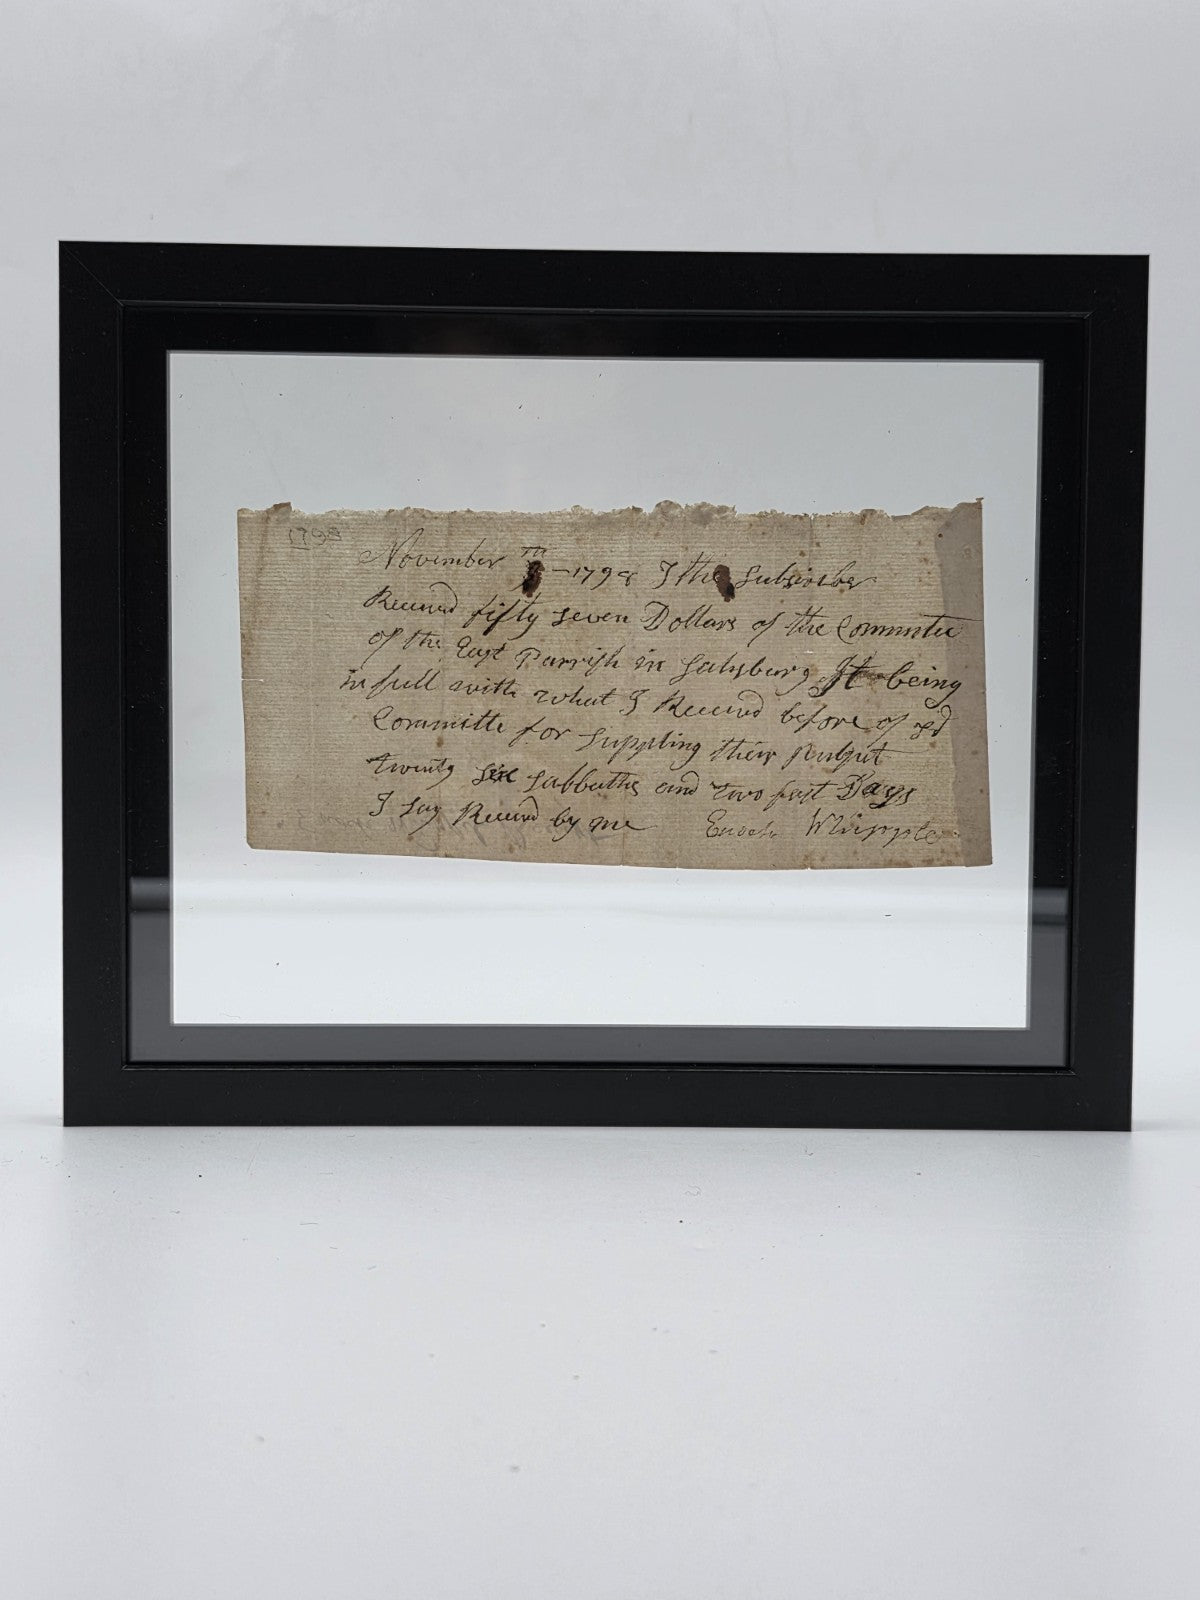 1798
November th - 1798 I the Subscriber
Receivd fifty seven Dollars of the Committe
of the East Parrish in Salsbury It being
in full with what I Receivd before of sd
Committe for suppling their pulpit
twenty six sabbaths and two fast Days
I say Receivd by me Enoch Whipple